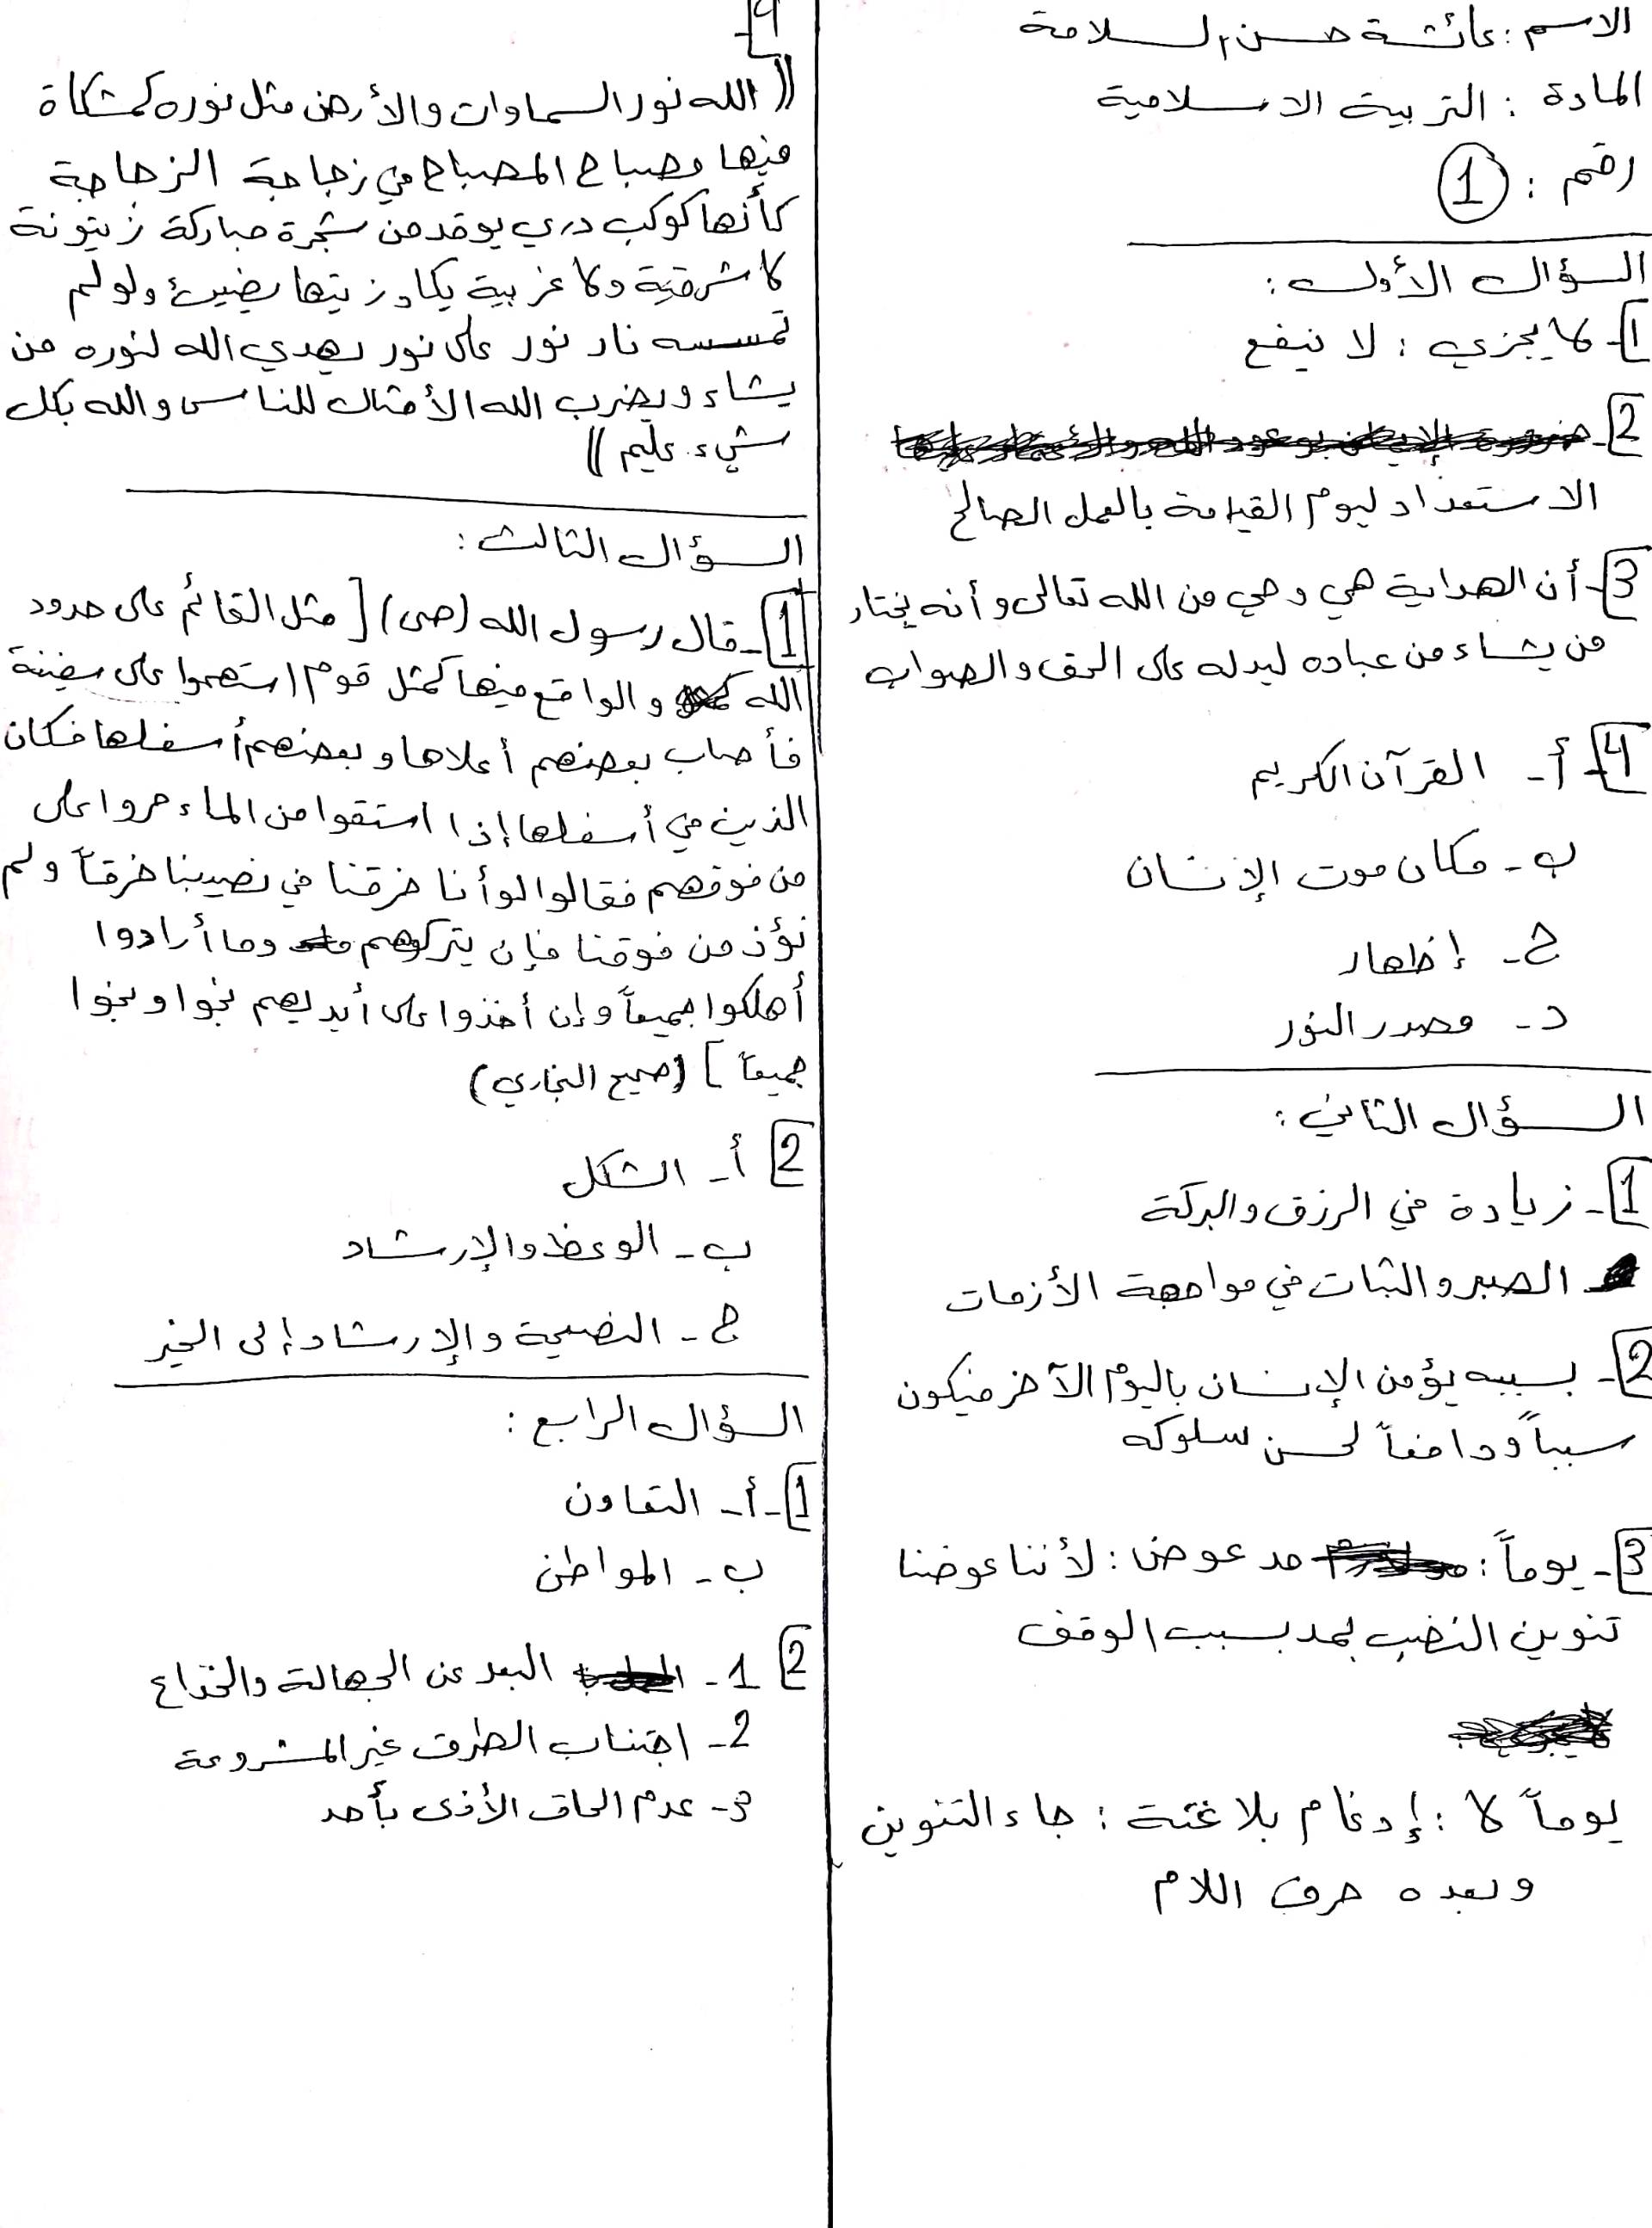 الاسم : عائشة حسن السلامة
المادة : التربية الاسلامية
رقم : 1
السؤال الأول :
1- لا يجزي : لا ينفع
2-
الاستعداد ليوم القيامة بالعمل الصالح
3- أن الهداية هي وحي من الله تعالى وأنه يختار
من يشاء من عباده ليدله على الحق والصواب
4- أ- القرآن الكريم
ب- مكان موت الإنسان
ج- إظهار
د- مصدر النور
السؤال الثاني :
1- زيادة في الرزق والبركة
- الصبر والثبات في مواجهة الأزمات
2- بسببه يؤمن الإنسان باليوم الآخر فيكون
سبباً ودافعاً لحسن سلوكه
3- يوماً : مد عوض : لأننا عوضنا
تنوين النصب بمد بسبب الوقف
يوماً لا : إدغام بلا غنة : جاء التنوين
وبعده حرف اللام
4-
(( الله نور السماوات والأرض مثل نوره كمشكاة
فيها مصباح المصباح في زجاجة الزجاجة
كأنها كوكب دري يوقد من شجرة مباركة زيتونة
لا شرقية ولا غربية يكاد زيتها يضيئ ولو لم
تمسسه نار نور على نور يهدي الله لنوره من
يشاء ويضرب الله الأمثال للناس والله بكل
شيء عليم ))
السؤال الثالث :
1- قال رسول الله (صى) [ مثل القائم على حدود
الله والواقع فيها كمثل قوم استهموا على سفينة
فأصاب بعضهم أعلاها وبعضهم أسفلها فكان
الذين في أسفلها إذا استقوا من الماء مروا على
من فوقهم فقالوا لو أنا خرقنا في نصيبنا خرقاً ولم
نؤذ من فوقنا فإن يتركوهم وما أرادوا
أهلكوا جميعاً وإن أخذوا على أيديهم نجوا ونجوا
جميعاً ] (صحيح البخاري)
2 أ- الشكل
ب- الوعظ والإرشاد
ج- النصيحة والإرشاد إلى الخير
السؤال الرابع :
1- أ- التعاون
ب- المواطن
2 1- البعد عن الجهالة والخداع
2- اجتناب الطرق غير المشروعة
3- عدم الحاق الأذى بأحد